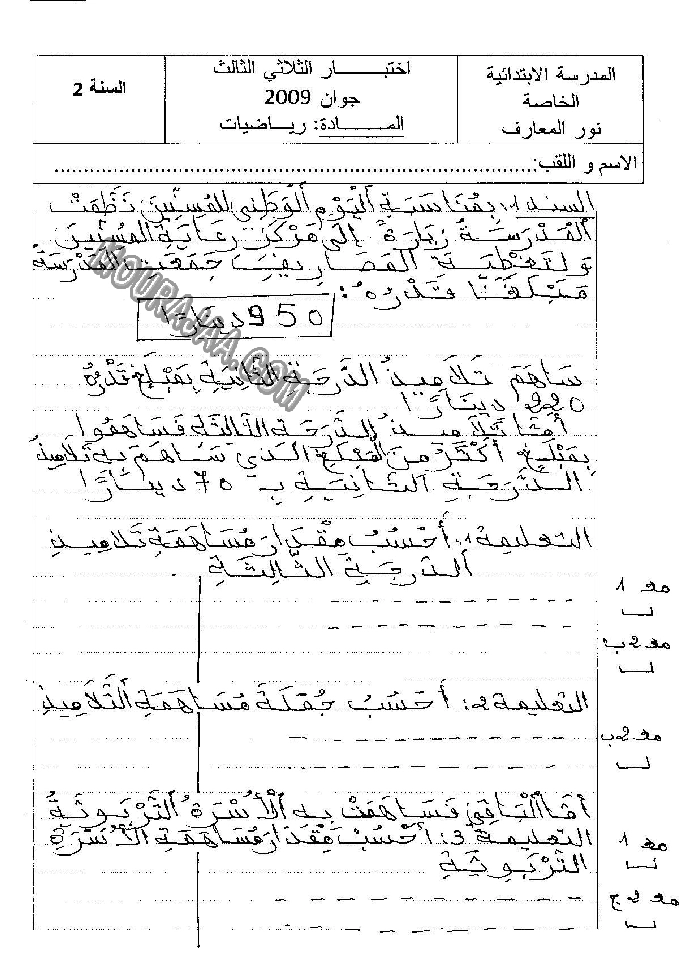 المدرسة الابتدائية
الخاصة
نور المعارف
اختبـــــــار الثلاثي الثالث
جوان 2009
المـــــادة: رياضيات
السنة 2
الاسم و اللقب:
السند 1: بِمُنَاسَبَةِ الْيَوْمِ الْوَطَنِي لِلْمُسِنِّينَ نَظَّمَتْ
الْمَدْرَسَةُ زِيَارَةً إِلَى مَرْكَزِ رِعَايَةِ الْمُسِنِّينَ
وَ لِتَغْطِيَةِ الْمَصَارِيفِ جَمَعَتْ الْمَدْرَسَةُ
مَبْلَغًا قَدْرُهُ:
950 دينارًا
سَاهَمَ تَلَامِيذُ الدَّرَجَةِ الثَّانِيَةِ بِمَبْلَغٍ قَدْرُهُ
220 دينارًا
أَمَّا تَلَامِيذُ الدَّرَجَةِ الثَّالِثَةِ فَسَاهَمُوا
بِمَبْلَغٍ أَكْثَرَ مِنَ الْمَبْلَغِ الَّذِي سَاهَمَ بِهِ تَلَامِيذُ
الدَّرَجَةِ الثَّانِيَةِ بِـ 70 دينَارًا
التعليمة 1: أَحْسُبُ مِقْدَارَ مُسَاهَمَةِ تَلَامِيذِ
الدَّرَجَةِ الثَّالِثَةِ
مع 1
مع 2 ب
التعليمة 2: أَحْسُبُ جُمْلَةَ مُسَاهَمَةِ التَّلَامِيذِ
مع 2 ب
أَمَّا الْبَاقِي فَسَاهَمَتْ بِهِ الْأُسْرَةُ التَّرْبَوِيَّةُ
التعليمة 3: أَحْسُبُ مِقْدَارَ مُسَاهَمَةِ الْأُسْرَةِ
التَّرْبَوِيَّةِ
مع 1
مع 2 ج
MOURAJAA.COM